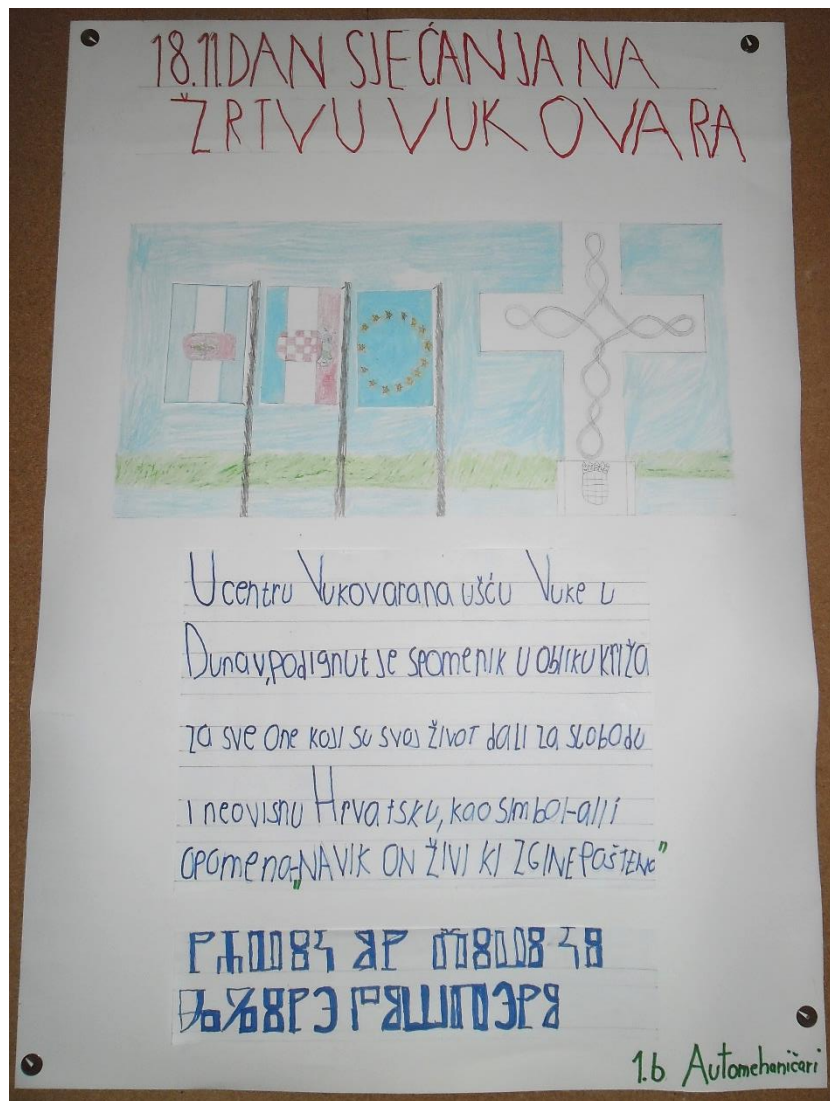 18.11.DAN SJEĆANJA NA
ŽRTVU VUKOVARA
U centru Vukovara na ušću Vuke u
Dunav, podignut je spomenik u obliku križa
za sve one koji su svoj život dali za slobodu
i neovisnu Hrvatsku, kao simbol-ali i
opomena-„NAVIK ON ŽIVI KI ZGINE POŠTENO"
1.b Automehaničari